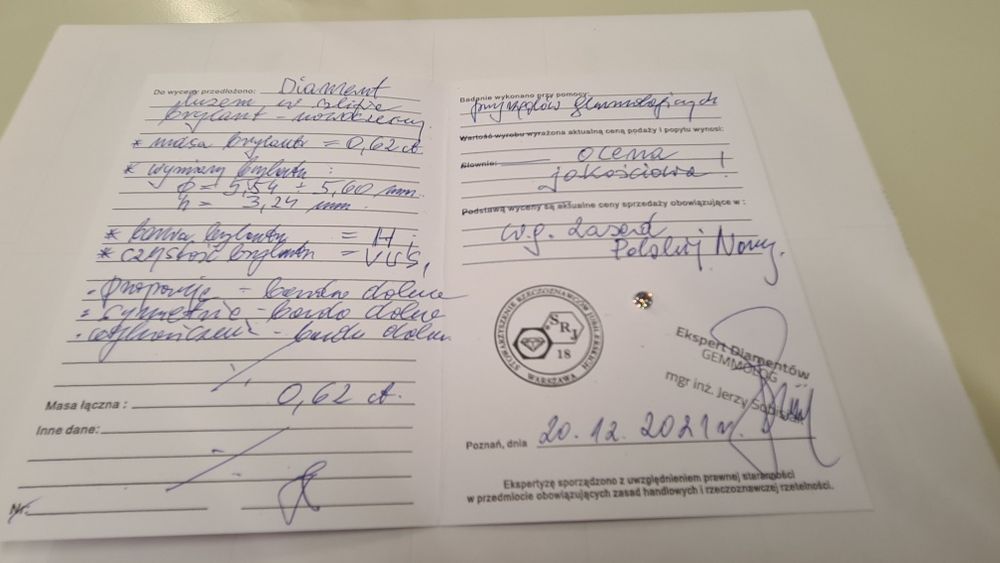 Do wyceny przedłożono: Diament
luzem, w szlifie
brylant - nowoczesny.
* masa brylantu = 0,62 ct.
* wymiary brylantu :
φ = 5,54 ÷ 5,60 mm.
h = 3,24 mm.
* barwa brylantu = H ;
* czystość brylantu = VVS1
- proporcje - bardzo dobre
- symetria - bardzo dobra
- wykończenie - bardzo dobre
Masa łączna : 0,62 ct.
Inne dane:
Nr.
Badanie wykonano przy pomocy:
przyrządów gemmologicznych
Wartość wyrobu wyrażona aktualną ceną podaży i popytu wynosi:
Słownie: ocena
jakościowa !
Podstawą wyceny są aktualne ceny sprzedaży obowiązujące w :
w.g. zasad
Polskiej Normy.
STOWARZYSZENIE RZECZOZNAWCÓW JUBILERSKICH
SRJ
18
WARSZAWA
Ekspert Diamentów
GEMMOLOG
mgr inż. Jerzy
Poznań, dnia 20.12.2021 r.
Ekspertyzę sporządzono z uwzględnieniem prawnej staranności
w przedmiocie obowiązujących zasad handlowych i rzeczoznawczej rzetelności.